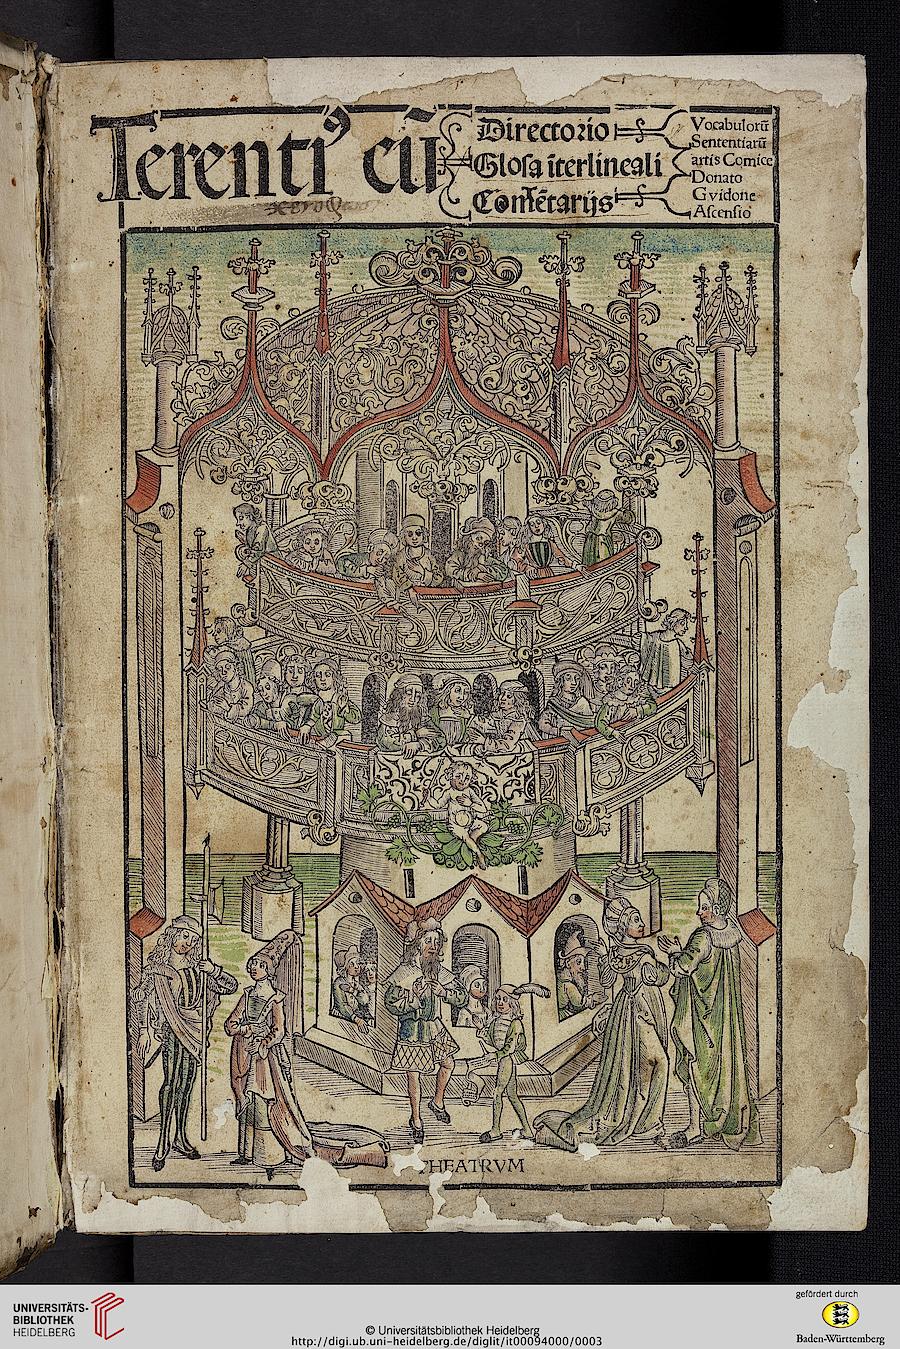 Terenti⁹ cū
Directorio
Glosa īterlineali
Comētarijs
Vocabulorū
Sententiarū
artis Comice
Donato
Gvidone
Ascensio
HEATRVM
UNIVERSITÄTS-
BIBLIOTHEK
HEIDELBERG
© Universitätsbibliothek Heidelberg
http://digi.ub.uni-heidelberg.de/diglit/it00094000/0003
gefördert durch
Baden-Württemberg